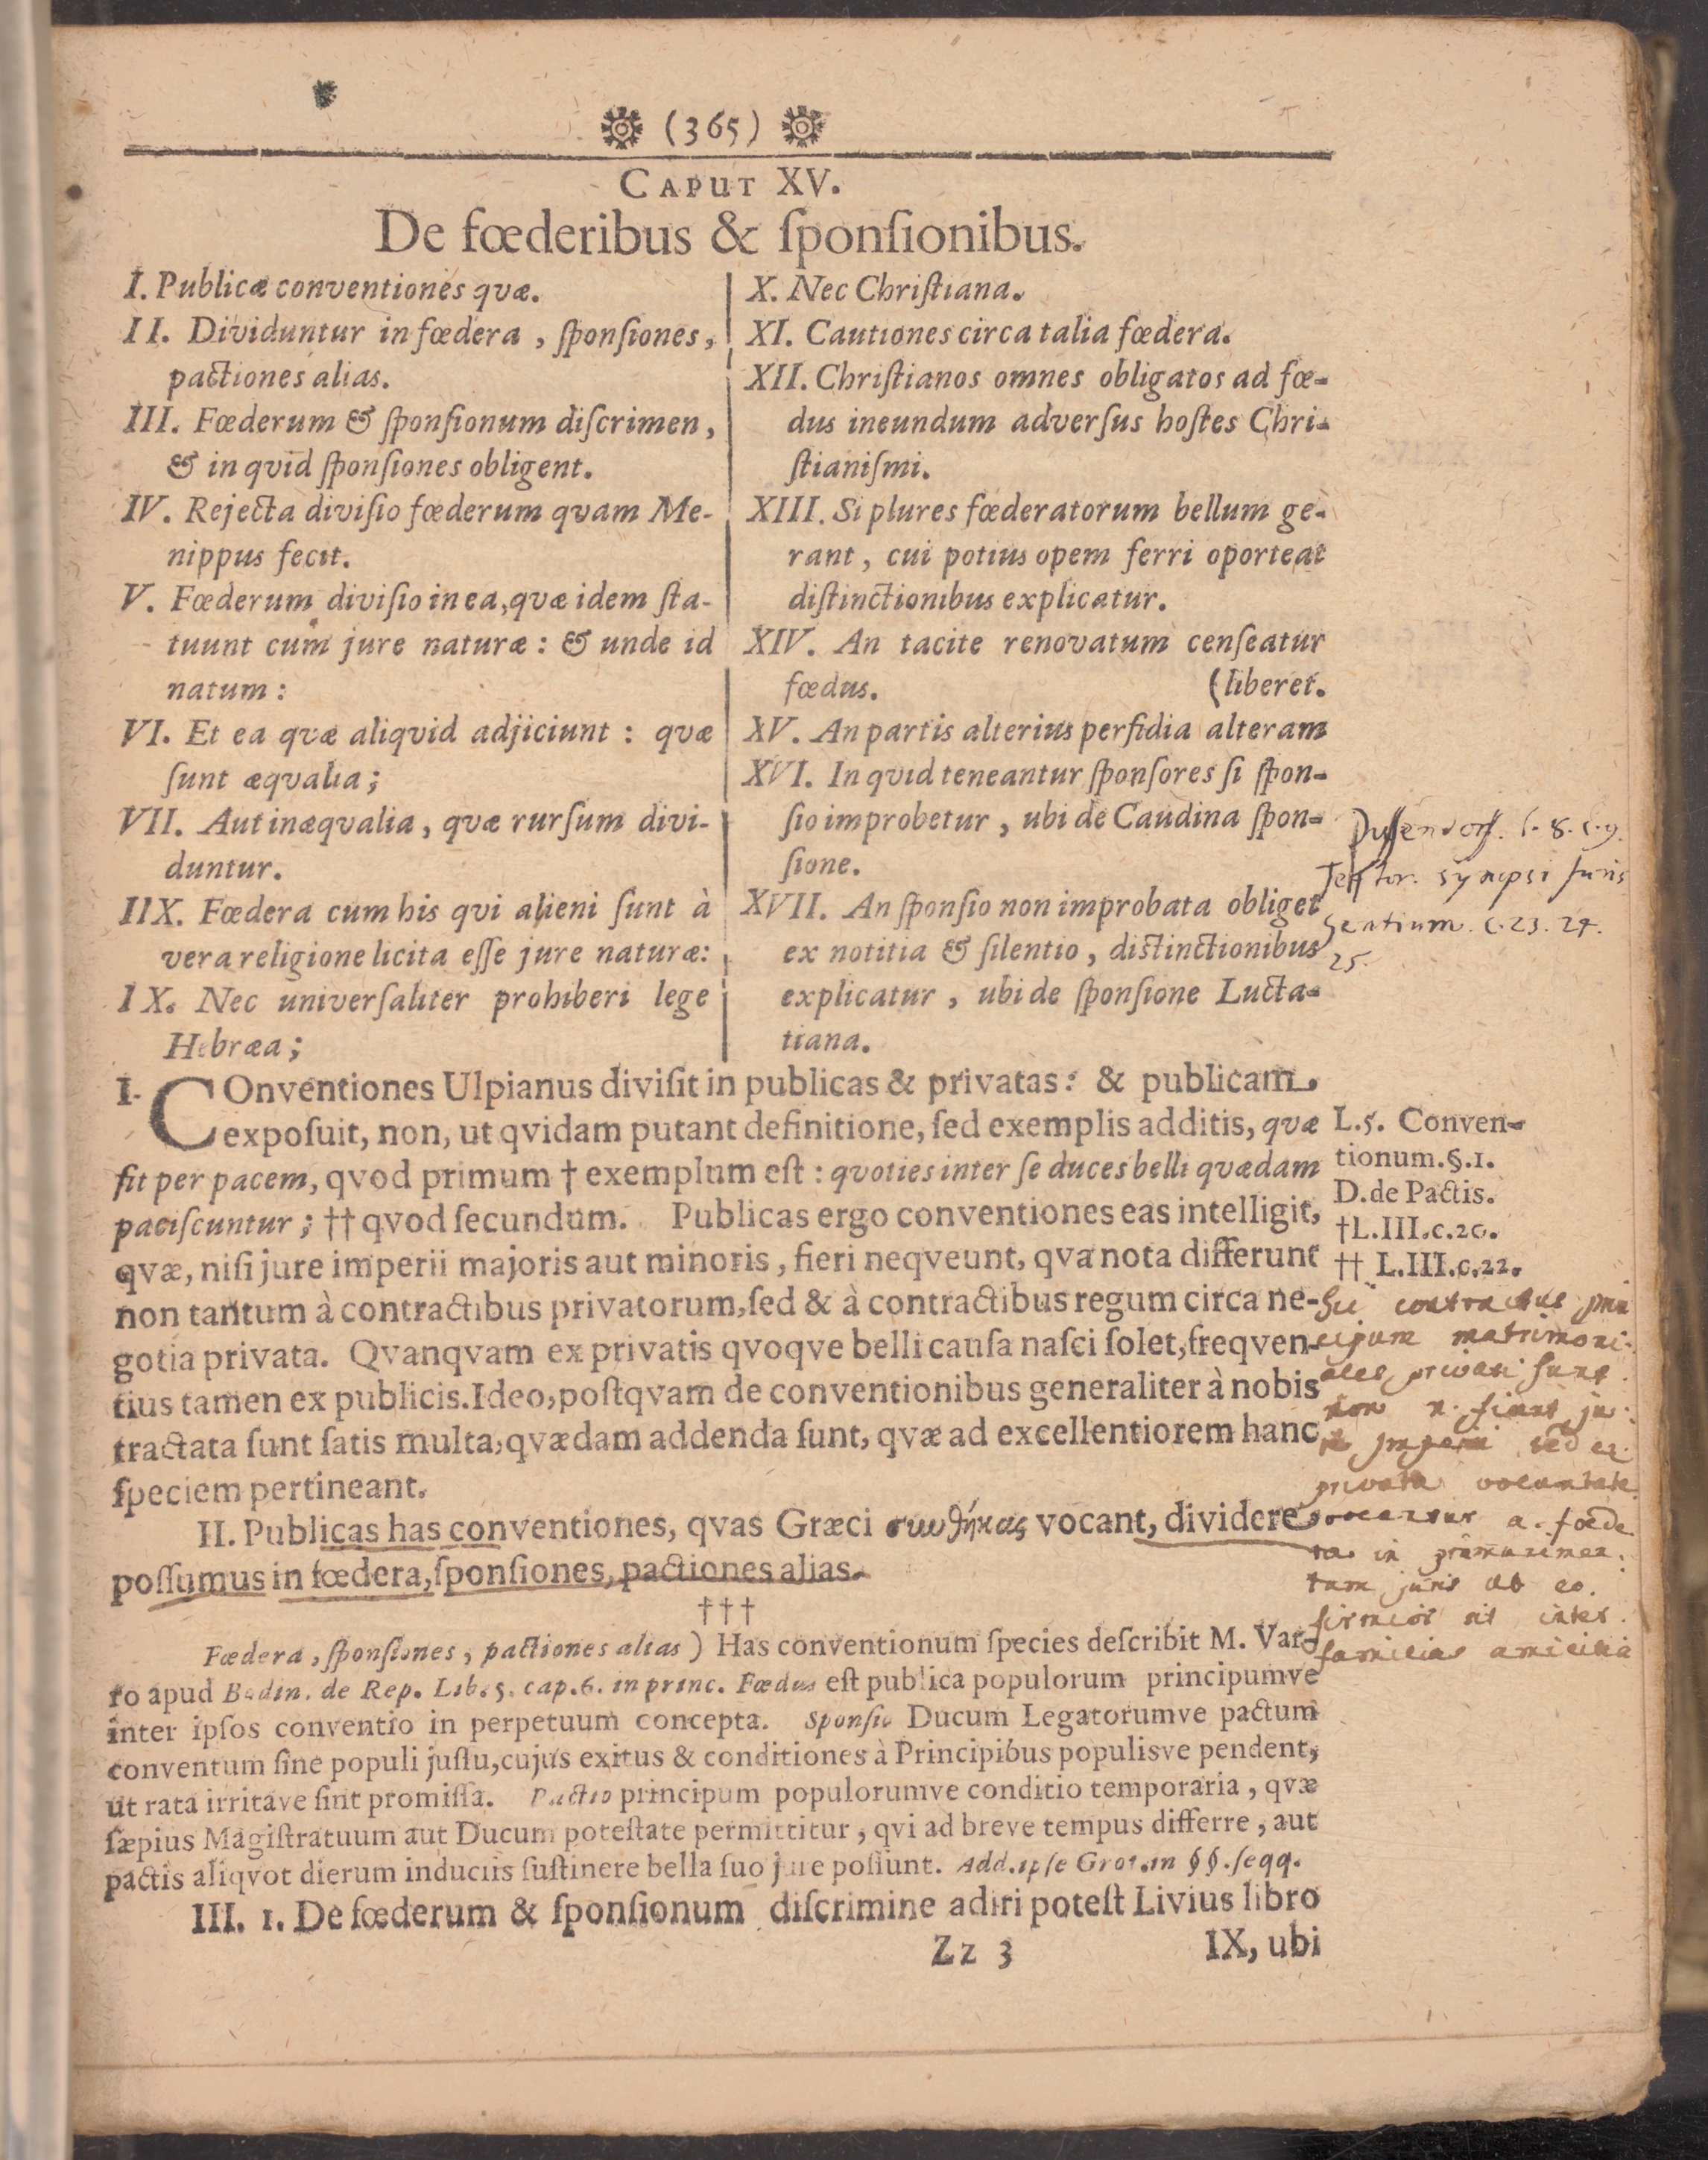 (365)
CAPUT XV.
De fœderibus & ſponſionibus.
I. Publicæ conventiones quæ.
II. Dividuntur in fœdera, ſponſiones,
pactiones alias.
III. Fœderum & ſponſionum diſcrimen,
& in qvid ſponſiones obligent.
IV. Rejecta diviſio fœderum quam Me-
nippus fecit.
V. Fœderum diviſio in ea, quæ idem ſta-
tuunt cum jure naturæ: & unde id
natum:
VI. Et ea quæ aliqvid adjiciunt: quæ
ſunt æqvalia;
VII. Aut inæqvalia, quæ rurſum divi-
duntur.
IIX. Fœdera cum his qvi alieni ſunt à
vera religione licita eſſe jure naturæ:
IX. Nec univerſaliter prohiberi lege
Hebræa;
X. Nec Chriſtiana.
XI. Cautiones circa talia fœdera.
XII. Chriſtianos omnes obligatos ad fœ-
dus ineundum adverſus hoſtes Chri-
ſtianiſmi.
XIII. Si plures fœderatorum bellum ge-
rant, cui potius opem ferri oporteat
diſtinctionibus explicatur.
XIV. An tacite renovatum cenſeatur
fœdus. (liberet.
XV. An partis alterius perfidia alteram
XVI. In qvid teneantur ſponſores ſi ſpon-
ſio improbetur, ubi de Caudina ſpon-
ſione.
XVII. An ſponſio non improbata obliget
ex notitia & ſilentio, diſtinctionibus
explicatur, ubi de ſponſione Lucta-
tiana.
Puffendorf. l. 8. c. 9.
Textor. synopsi Juris
Gentium. c. 23. 24.
25.
I. COnventiones Ulpianus diviſit in publicas & privatas: & publicam
expoſuit, non, ut qvidam putant definitione, ſed exemplis additis, quæ
fit per pacem, qvod primum † exemplum eſt: quoties inter ſe duces belli quædam
paciſcuntur; †† qvod ſecundum. Publicas ergo conventiones eas intelligit,
qvæ, niſi jure imperii majoris aut minoris, fieri neqveunt, qva nota differunt
non tantum à contractibus privatorum, ſed & à contractibus regum circa ne-
gotia privata. Qvanqvam ex privatis qvoqve belli cauſa naſci ſolet, freqven-
tius tamen ex publicis. Ideo, poſtqvam de conventionibus generaliter à nobis
tractata ſunt ſatis multa, qvædam addenda ſunt, qvæ ad excellentiorem hanc
ſpeciem pertineant.
L. 5. Conven-
tionum. §. 1.
D. de Pactis.
† L. III. c. 20.
†† L. III. c. 22.
contractus prin
cipum matrimoni-
ales privati sunt
non n. fiunt ju-
imperii sed ex
privata voluntate
a. fœde
ra in
tum juris ab eo.
firmior sit inter
familias amicitia
II. Publicas has conventiones, qvas Græci συνθήκας vocant, dividere
poſſumus in fœdera, ſponſiones, pactiones alias.
†††
Fœdera, ſponſiones, pactiones alias) Has conventionum ſpecies deſcribit M. Var-
ro apud Bodin. de Rep. Lib. 5. cap. 6. in princ. Fœdus eſt publica populorum principumve
inter ipſos conventio in perpetuum concepta. Sponſio Ducum Legatorumve pactum
conventum ſine populi juſſu, cujus exitus & conditiones à Principibus populisve pendent,
ut rata irritave ſint promiſſa. Pactio principum populorumve conditio temporaria, qvæ
ſæpius Magiſtratuum aut Ducum poteſtate permittitur, qvi ad breve tempus differre, aut
pactis aliqvot dierum induciis ſuſtinere bella ſuo jure poſſunt. Add. ipſe Grot. in §§. ſeqq.
III. 1. De fœderum & ſponſionum diſcrimine adiri poteſt Livius libro
Zz 3 IX, ubi